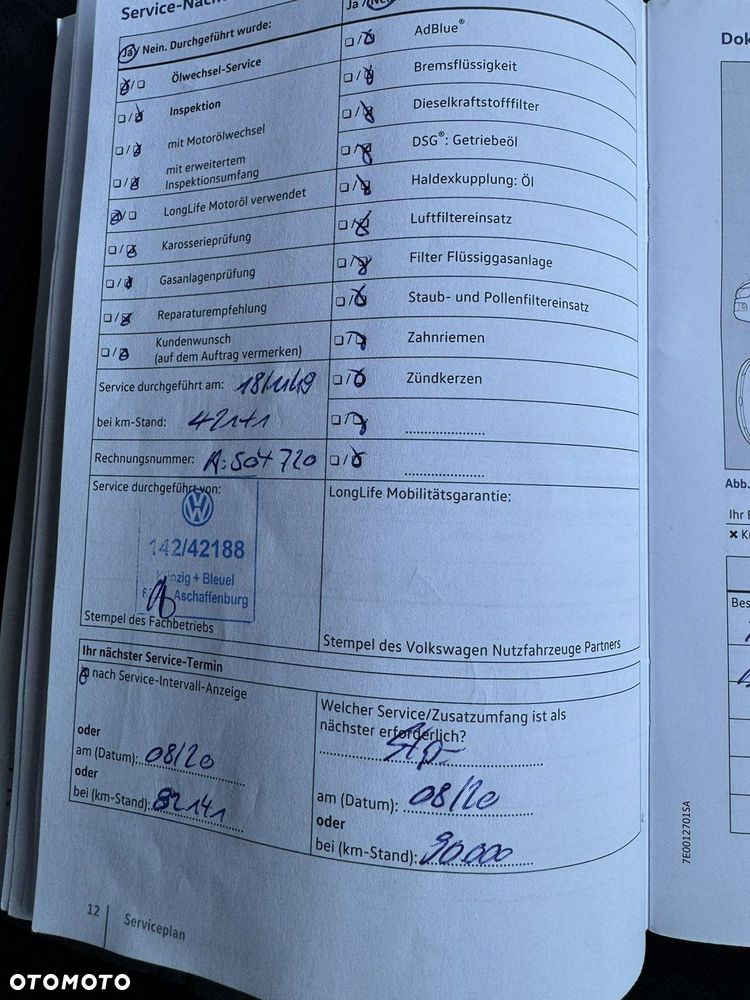 Service-Nach
Ja / Nein. Durchgeführt wurde:
Ölwechsel-Service
Inspektion
mit Motorölwechsel
mit erweitertem
Inspektionsumfang
LongLife Motoröl verwendet
Karosserieprüfung
Gasanlagenprüfung
Reparaturempfehlung
Kundenwunsch
(auf dem Auftrag vermerken)
Service durchgeführt am:
bei km-Stand:
Rechnungsnummer: A:504720
Service durchgeführt von:
142/42188
+ Bleuel
Aschaffenburg
Stempel des Fachbetriebs
Ja /
AdBlue®
Bremsflüssigkeit
Dieselkraftstofffilter
DSG®: Getriebeöl
Haldexkupplung: Öl
Luftfiltereinsatz
Filter Flüssiggasanlage
Staub- und Pollenfiltereinsatz
Zahnriemen
Zündkerzen
LongLife Mobilitätsgarantie:
Stempel des Volkswagen Nutzfahrzeuge Partners
Ihr nächster Service-Termin
nach Service-Intervall-Anzeige
oder
am (Datum): 08/20
oder
bei (km-Stand):
Welcher Service/Zusatzumfang ist als
nächster erforderlich?
am (Datum): 08/20
oder
bei (km-Stand): 90000
12
Serviceplan
Dok
Abb.
Ihr
Bes
7E0012701SA
OTOMOTO